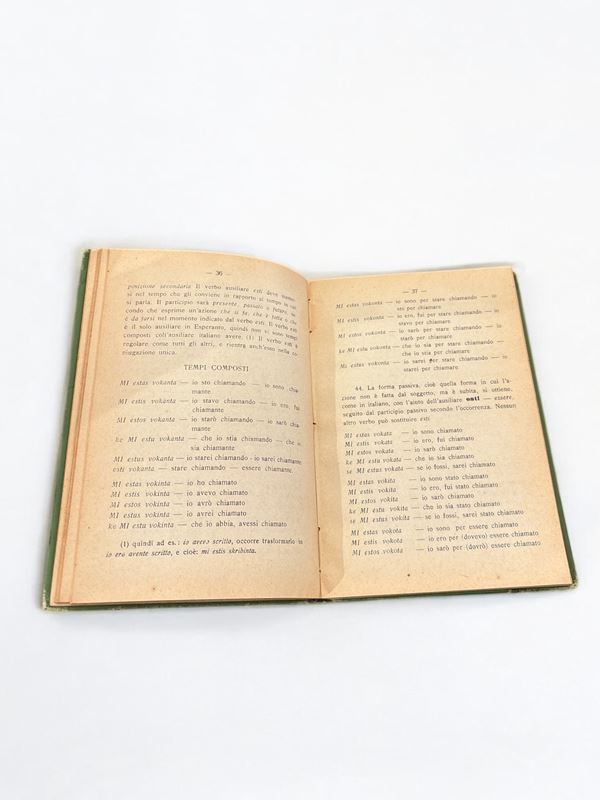 — 36 —
posizione secondaria Il verbo ausiliare esti deve
si nel tempo che gli conviene in rapporto al tempo in cui
si parla. Il participio sarà presente, passato o futuro, se-
condo che esprime un'azione che si fa, che è fatta o che
è da farsi nel momento indicato dal verbo esti. Il verbo esti
è il solo ausiliare in Esperanto, quindi non vi sono tempi
composti coll'ausiliare italiano avere. (1) Il verbo esti è
regolare come tutti gli altri, e rientra anch'esso nella co-
niugazione unica.
TEMPI COMPOSTI
MI estas vokanta — io sto chiamando — io sono chia-
mante
MI estis vokanta — io stavo chiamando — io ero, fui
chiamante
MI estos vokanta — io starò chiamando — io sarò chia-
mante
ke MI estu vokanta — che io stia chiamando — che io
sia chiamante
MI estus vokanta — io starei chiamando - io sarei chiamante
esti vokanta — stare chiamando — essere chiamante
MI estas vokinta — io ho chiamato
MI estis vokinta — io avevo chiamato
MI estos vokinta — io avrò chiamato
MI estus vokinta — io avrei chiamato
ke MI estu vokinta — che io abbia, avessi chiamato
(1) quindi ad es.: io avevo scritto, occorre trasformarlo in
io ero avente scritto, e cioè: mi estis skribinta.
— 37 —
MI estas vokonta — io sono per stare chiamando — io
sto per chiamare
MI estis vokonta — io ero, fui per stare chiamando — io
stavo per chiamare
MI estos vokonta — io sarò per stare chiamando — io
starò per chiamare
ke MI estu vokonta — che io sia per stare chiamando —
che io stia per chiamare
MI estus vokonta — io sarei per stare chiamando — io
starei per chiamare
44. La forma passiva, cioè quella forma in cui l'a-
zione non è fatta dal soggetto, ma è subita, si ottiene,
come in italiano, con l'aiuto dell'ausiliare esti — essere,
seguito dal participio passivo secondo l'occorrenza. Nessun
altro verbo può sostituire esti
MI estas vokata — io sono chiamato
MI estis vokata — io ero, fui chiamato
MI estos vokata — io sarò chiamato
ke MI estu vokata — che io sia chiamato
se MI estus vokata — se io fossi, sarei chiamato
MI estas vokita — io sono stato chiamato
MI estis vokita — io ero, fui stato chiamato
MI estos vokita — io sarò chiamato
ke MI estu vokita — che io sia stato chiamato
se MI estus vokita — se io fossi, sarei stato chiamato
MI estas vokota — io sono per essere chiamato
MI estis vokota — io ero per (dovevo) essere chiamato
MI estos vokota — io sarò per (dovrò) essere chiamato